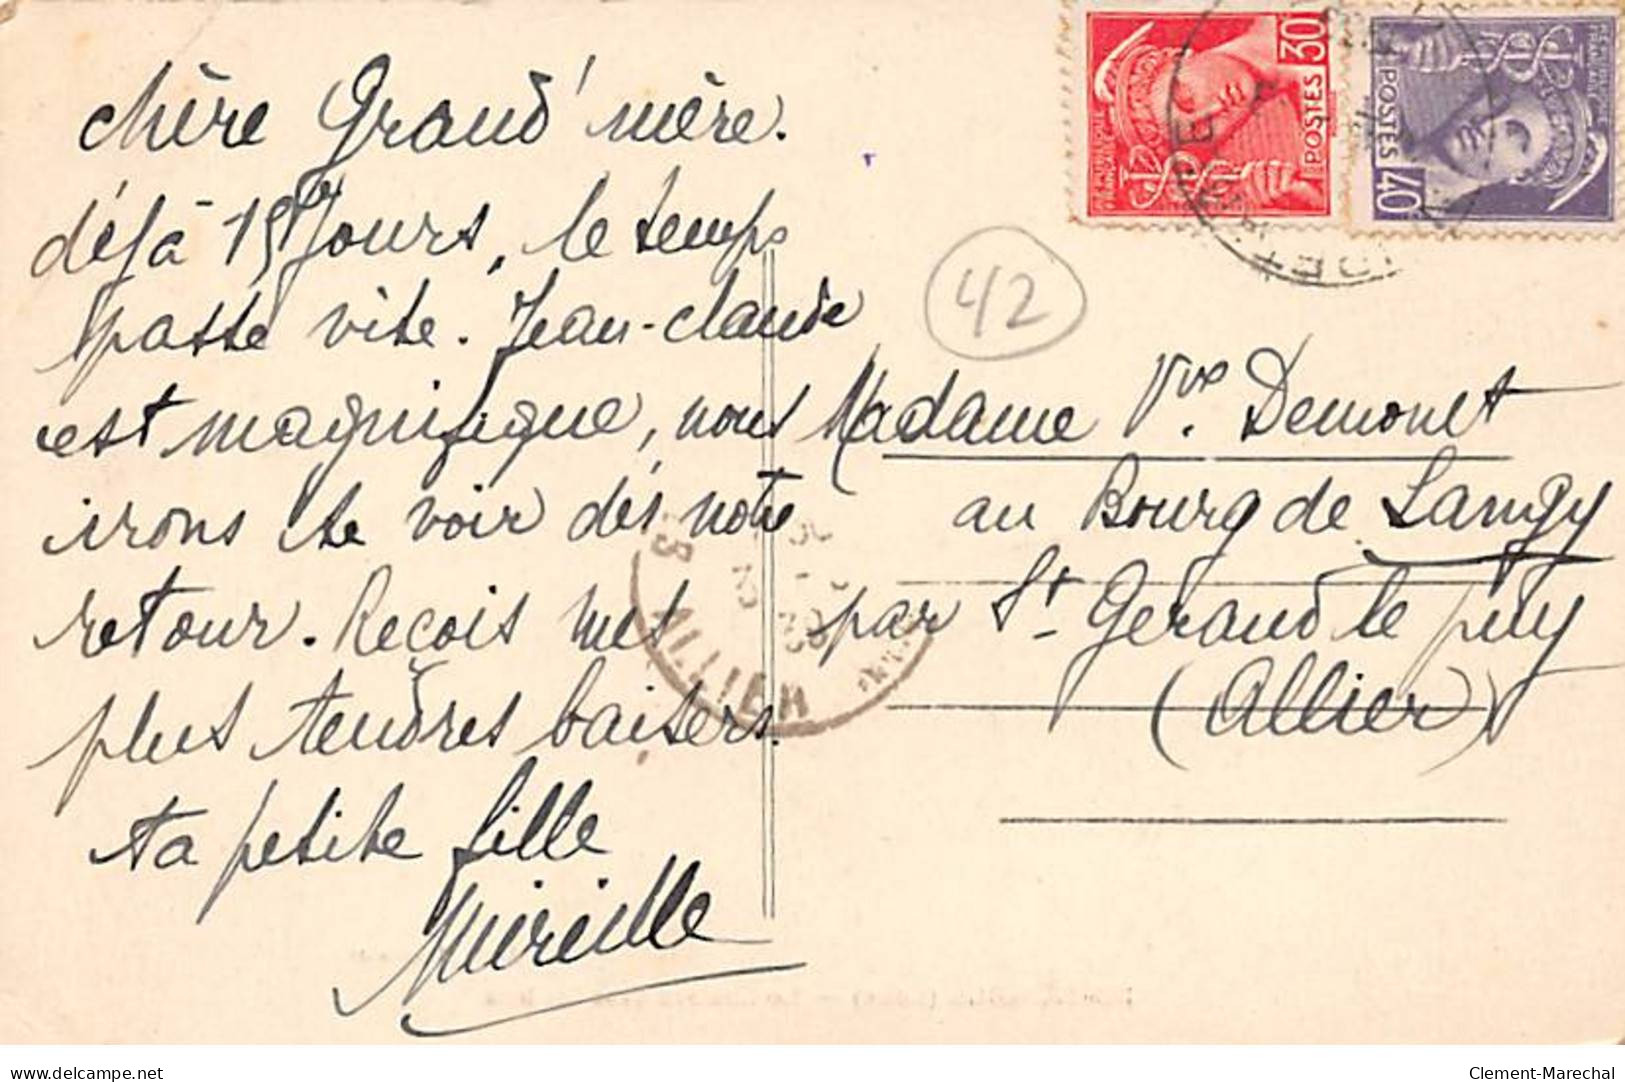 chère Grand'mère.
déjà 15 jours, le temps
passe vite. Jean-claude
est magnifique, nous
irons te voir dès notre
retour. Reçois mes
plus tendres baisers.
ta petite fille
Mireille
30
POSTES
40
POSTES
42
Madame Vve. Demonet
au Bourg de Langy
par St Gerand le puy
(Allier)
ALLIER
Clement-Marechal
delcampe.net